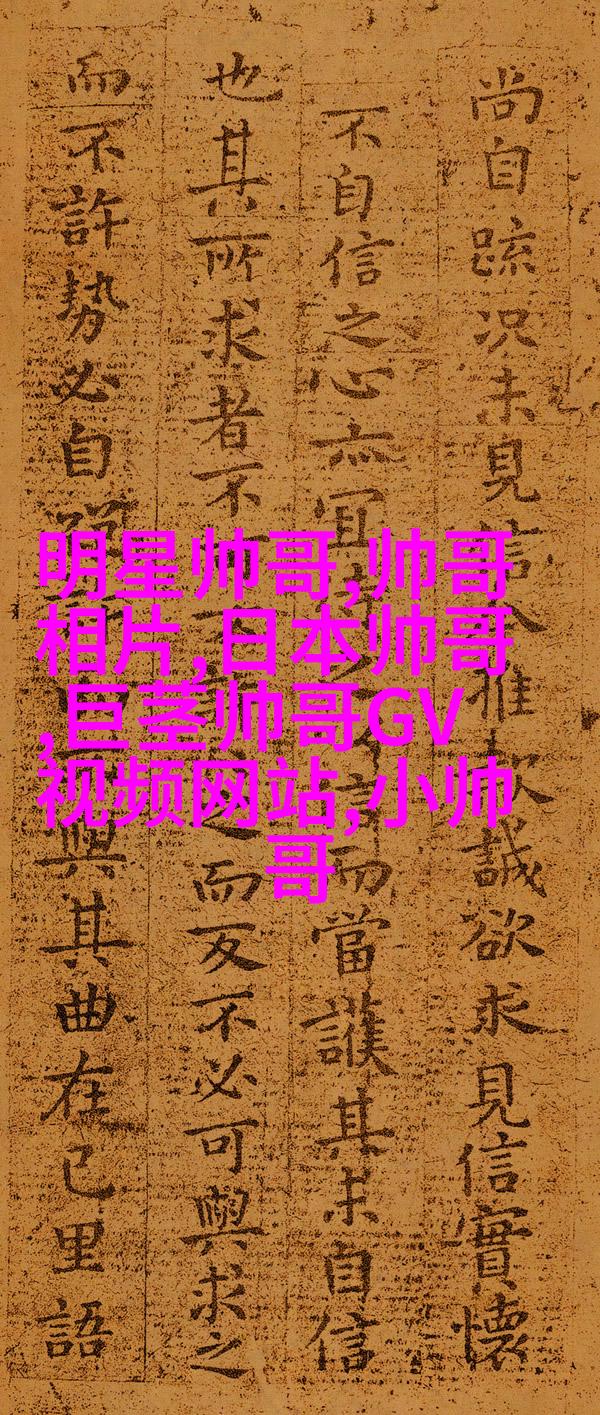 尚自疏况未見信惟款誠欲求見信實懷
不自信之心亦宜言而當護其未自信
也其所求者不之而反不必可與求之
而不許勢必自與其曲在己里語
明星帅哥,帅哥
相片,日本帅哥
,巨茎帅哥GV
视频网站,小帅
哥